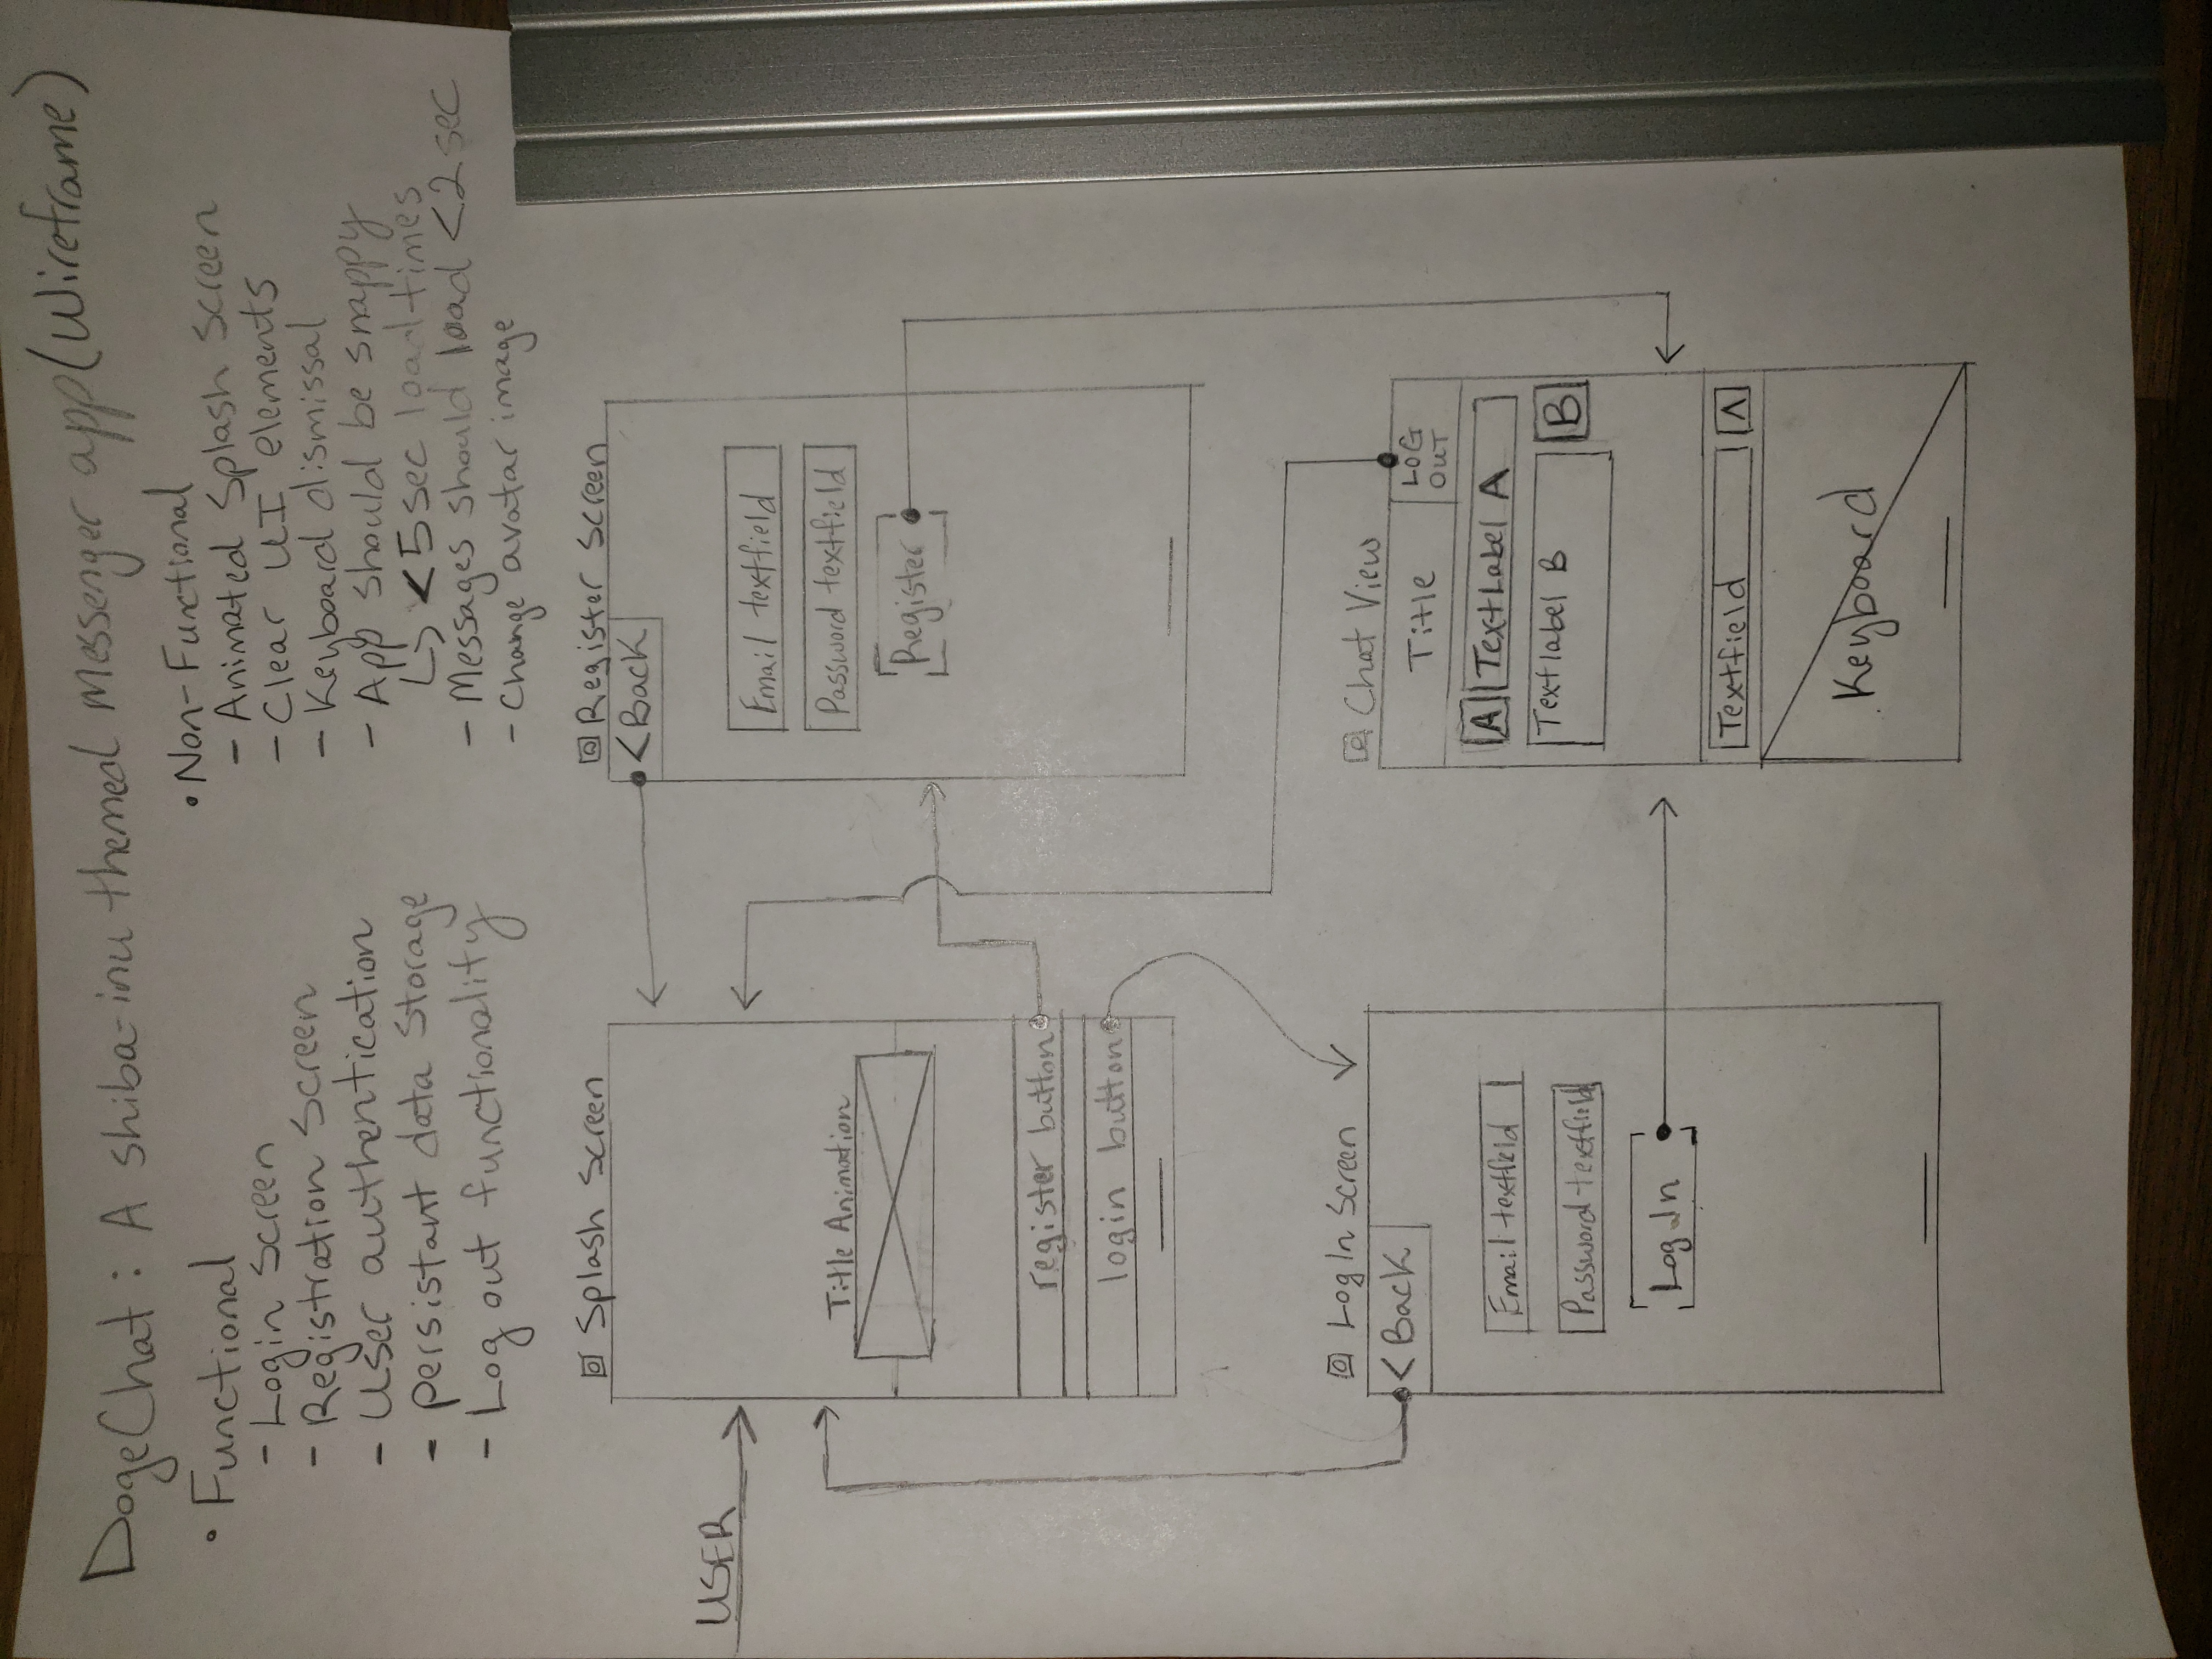 DogeChat: A shiba-inu themed Messenger app (Wireframe)
• Functional
- Login Screen
- Registration Screen
- User authentication
- persistant data storage
- Log out functionality
• Non-Functional
- Animated Splash Screen
- Clear UI elements
- Keyboard dismissal
- App should be snappy
↳ <5 sec load times
- Messages should load <2 sec
- Change avatar image
Splash Screen
USER
Title Animation
register button
login button
Register Screen
<Back
Email textfield
Password textfield
Register
Log In Screen
<Back
Email textfield
Password textfield
Log In
Chat View
Title
LOG
OUT
A TextLabel A
Textlabel B B
Textfield ^
Keyboard